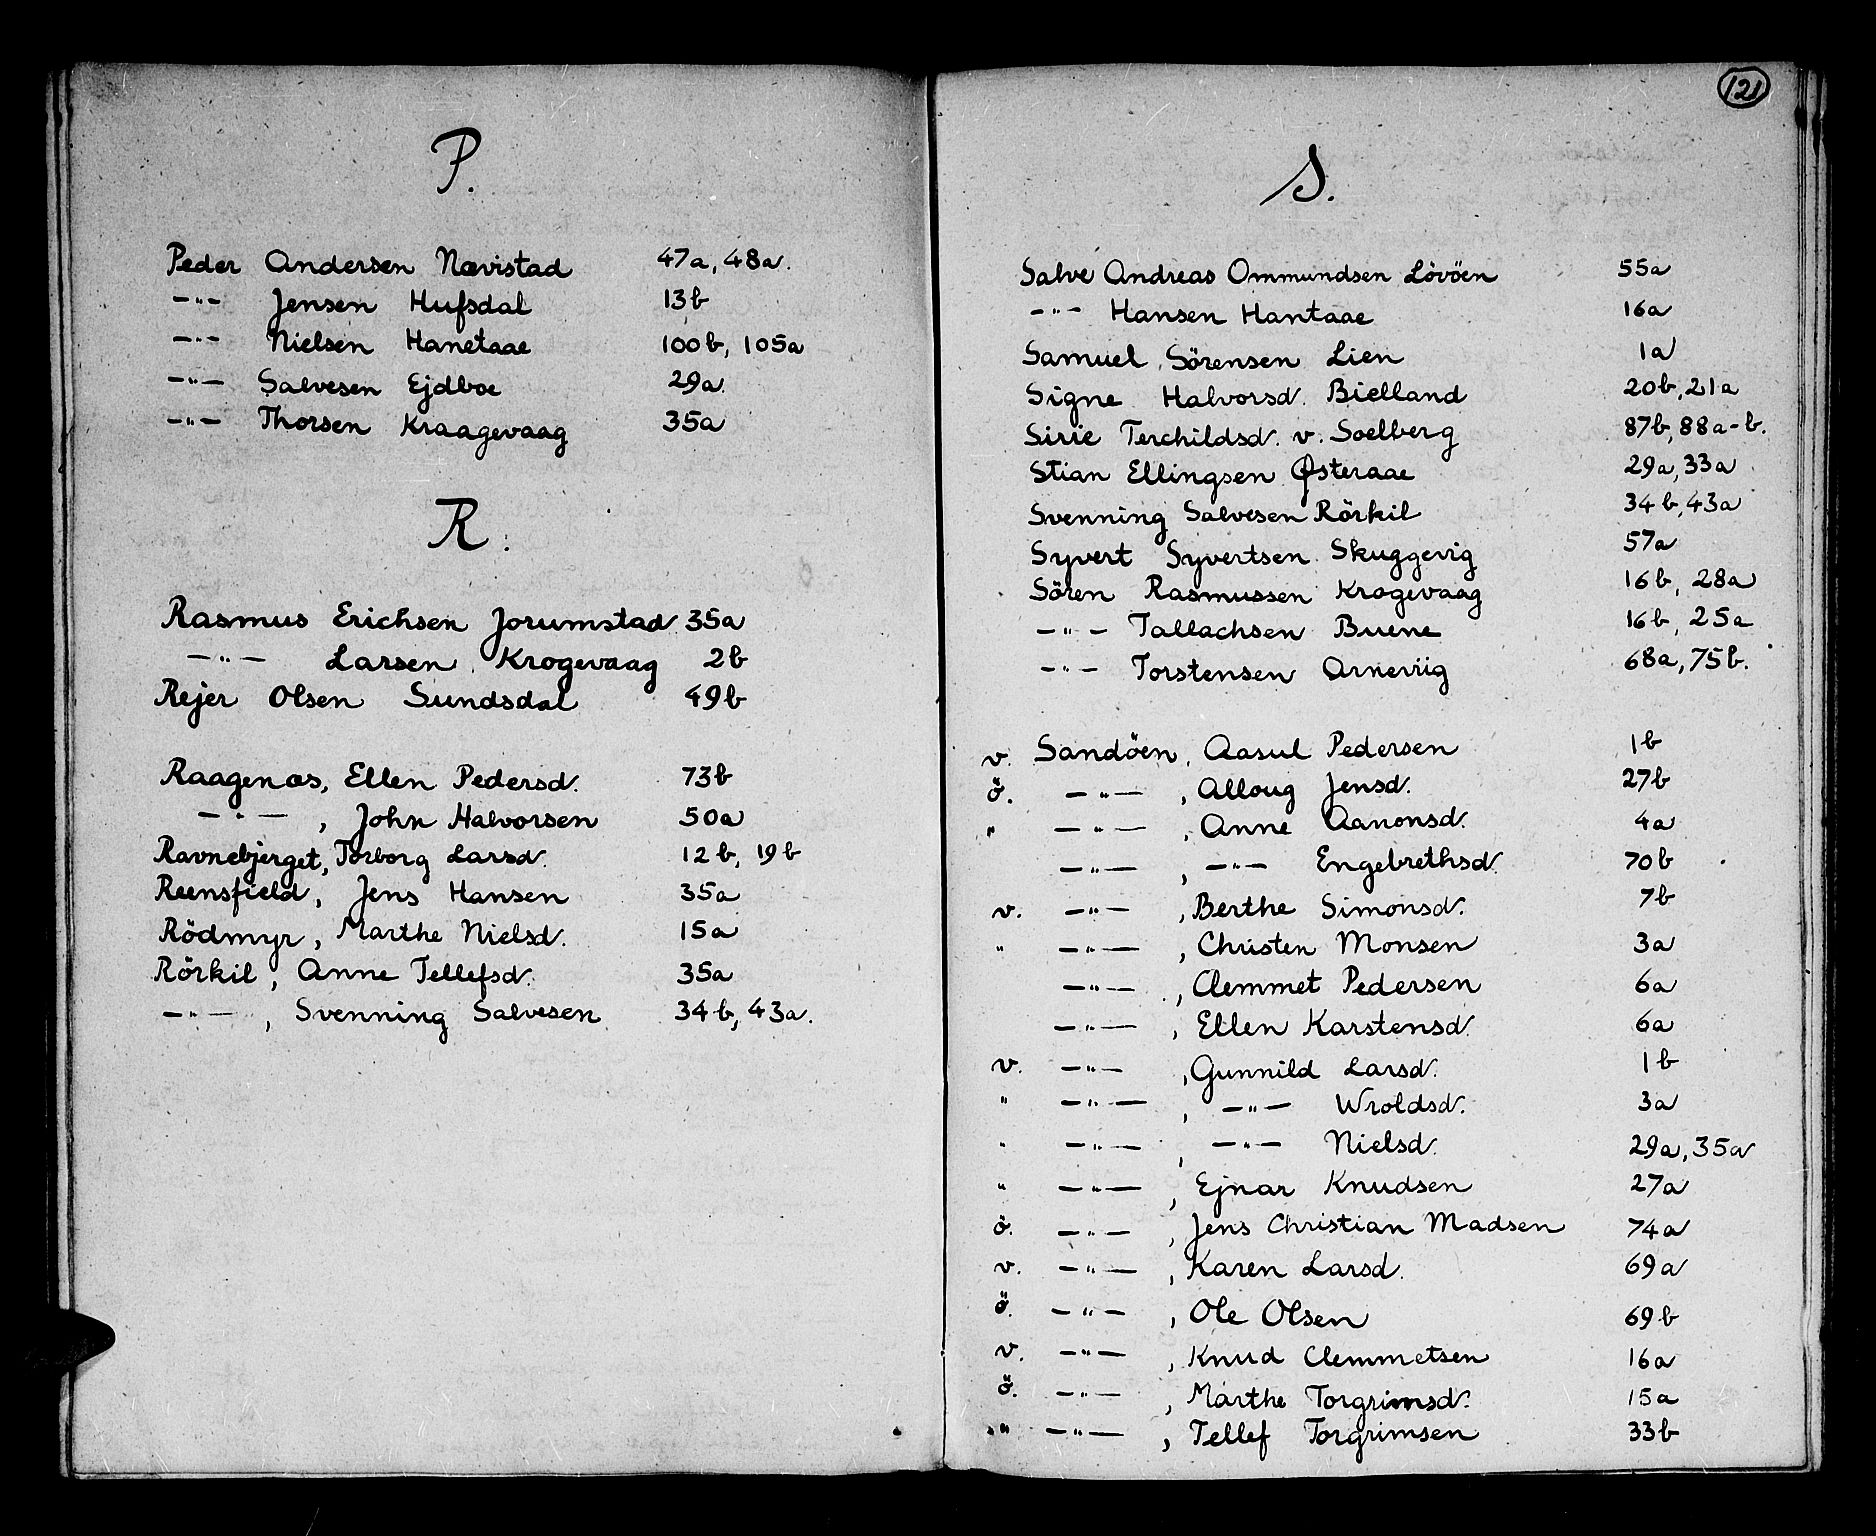 P.
Peder Andersen Nævistad 47a, 48a.
-"- Jensen Hufsdal 13b
-"- Nielsen Hanetaae 100b, 105a
-"- Salvesen Ejdboe 29a.
-"- Thorsen Kraagevaag 35a
R.
Rasmus Erichsen Jorumstad 35a
-"- Larsen Krogevaag 2b
Rejer Olsen Sundsdal 49b
Raagenæs, Ellen Pedersd. 73b
-"- , John Halvorsen 50a
Ravnebjerget, Torborg Larsd. 12b, 19b
Reensfield, Jens Hansen 35a
Rödmyr, Marthe Nielsd. 15a
Rörkil, Anne Tellefsd. 35a
-"- , Svenning Salvesen 34b, 43a.
121
S.
Salve Andreas Ommundsen Lövöen 55a
-"- Hansen Hantaae 16a
Samuel Sörensen Lien 1a
Signe Halvorsd. Bielland 20b, 21a
Sirie Terchildsd. v. Soelberg 87b, 88a-b.
Stian Ellingsen Østeraae 29a, 33a
Svenning Salvesen Rörkil 34b, 43a
Syvert Syvertsen Skuggevig 57a
Sören Rasmussen Krogevaag 16b, 28a
-"- Tallachsen Buene 16b, 25a
-"- Torstensen Arneviig 68a, 75b.
v. Sandöen, Aasul Pedersen 1b
ö. -"- , Alloug Jensd. 27b
" -"- , Anne Aanonsd. 4a
-"- , -"- Engebrethsd. 70b
v. -"- , Berthe Simonsd. 7b
" -"- , Christen Monsen 3a
-"- , Clemmet Pedersen 6a
-"- , Ellen Karstensd. 6a
v. -"- , Gunnild Larsd. 1b
" -"- , -"- Wroldsd. 3a
" -"- , -"- Nielsd. 29a, 35a
" -"- , Ejnar Knudsen 27a
ö. -"- , Jens Christian Madsen 74a
v. -"- , Karen Larsd. 69a
ö. -"- , Ole Olsen 69b
v. -"- , Knud Clemmetsen 16a
ö. -"- , Marthe Torgrimsd. 15a
" -"- , Tellef Torgrimsen 33b